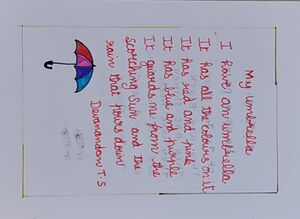 My umbrella
I have an umbrella
It has all the colours on it
It has red and pink
It has blue and purple
It guards me from the
scorching Sun and the
rain that pours down
Devanandan T.S